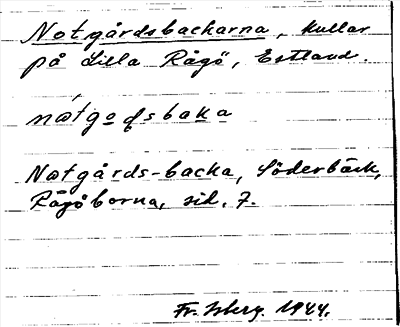 Notgårdsbackarna, kullar
på Lilla Rågö, Estland.
nátgodsbaka
Natgårds-backa, Söderbäck,
Rågöborna, sid. 7.
Fr. Isberg. 1944.